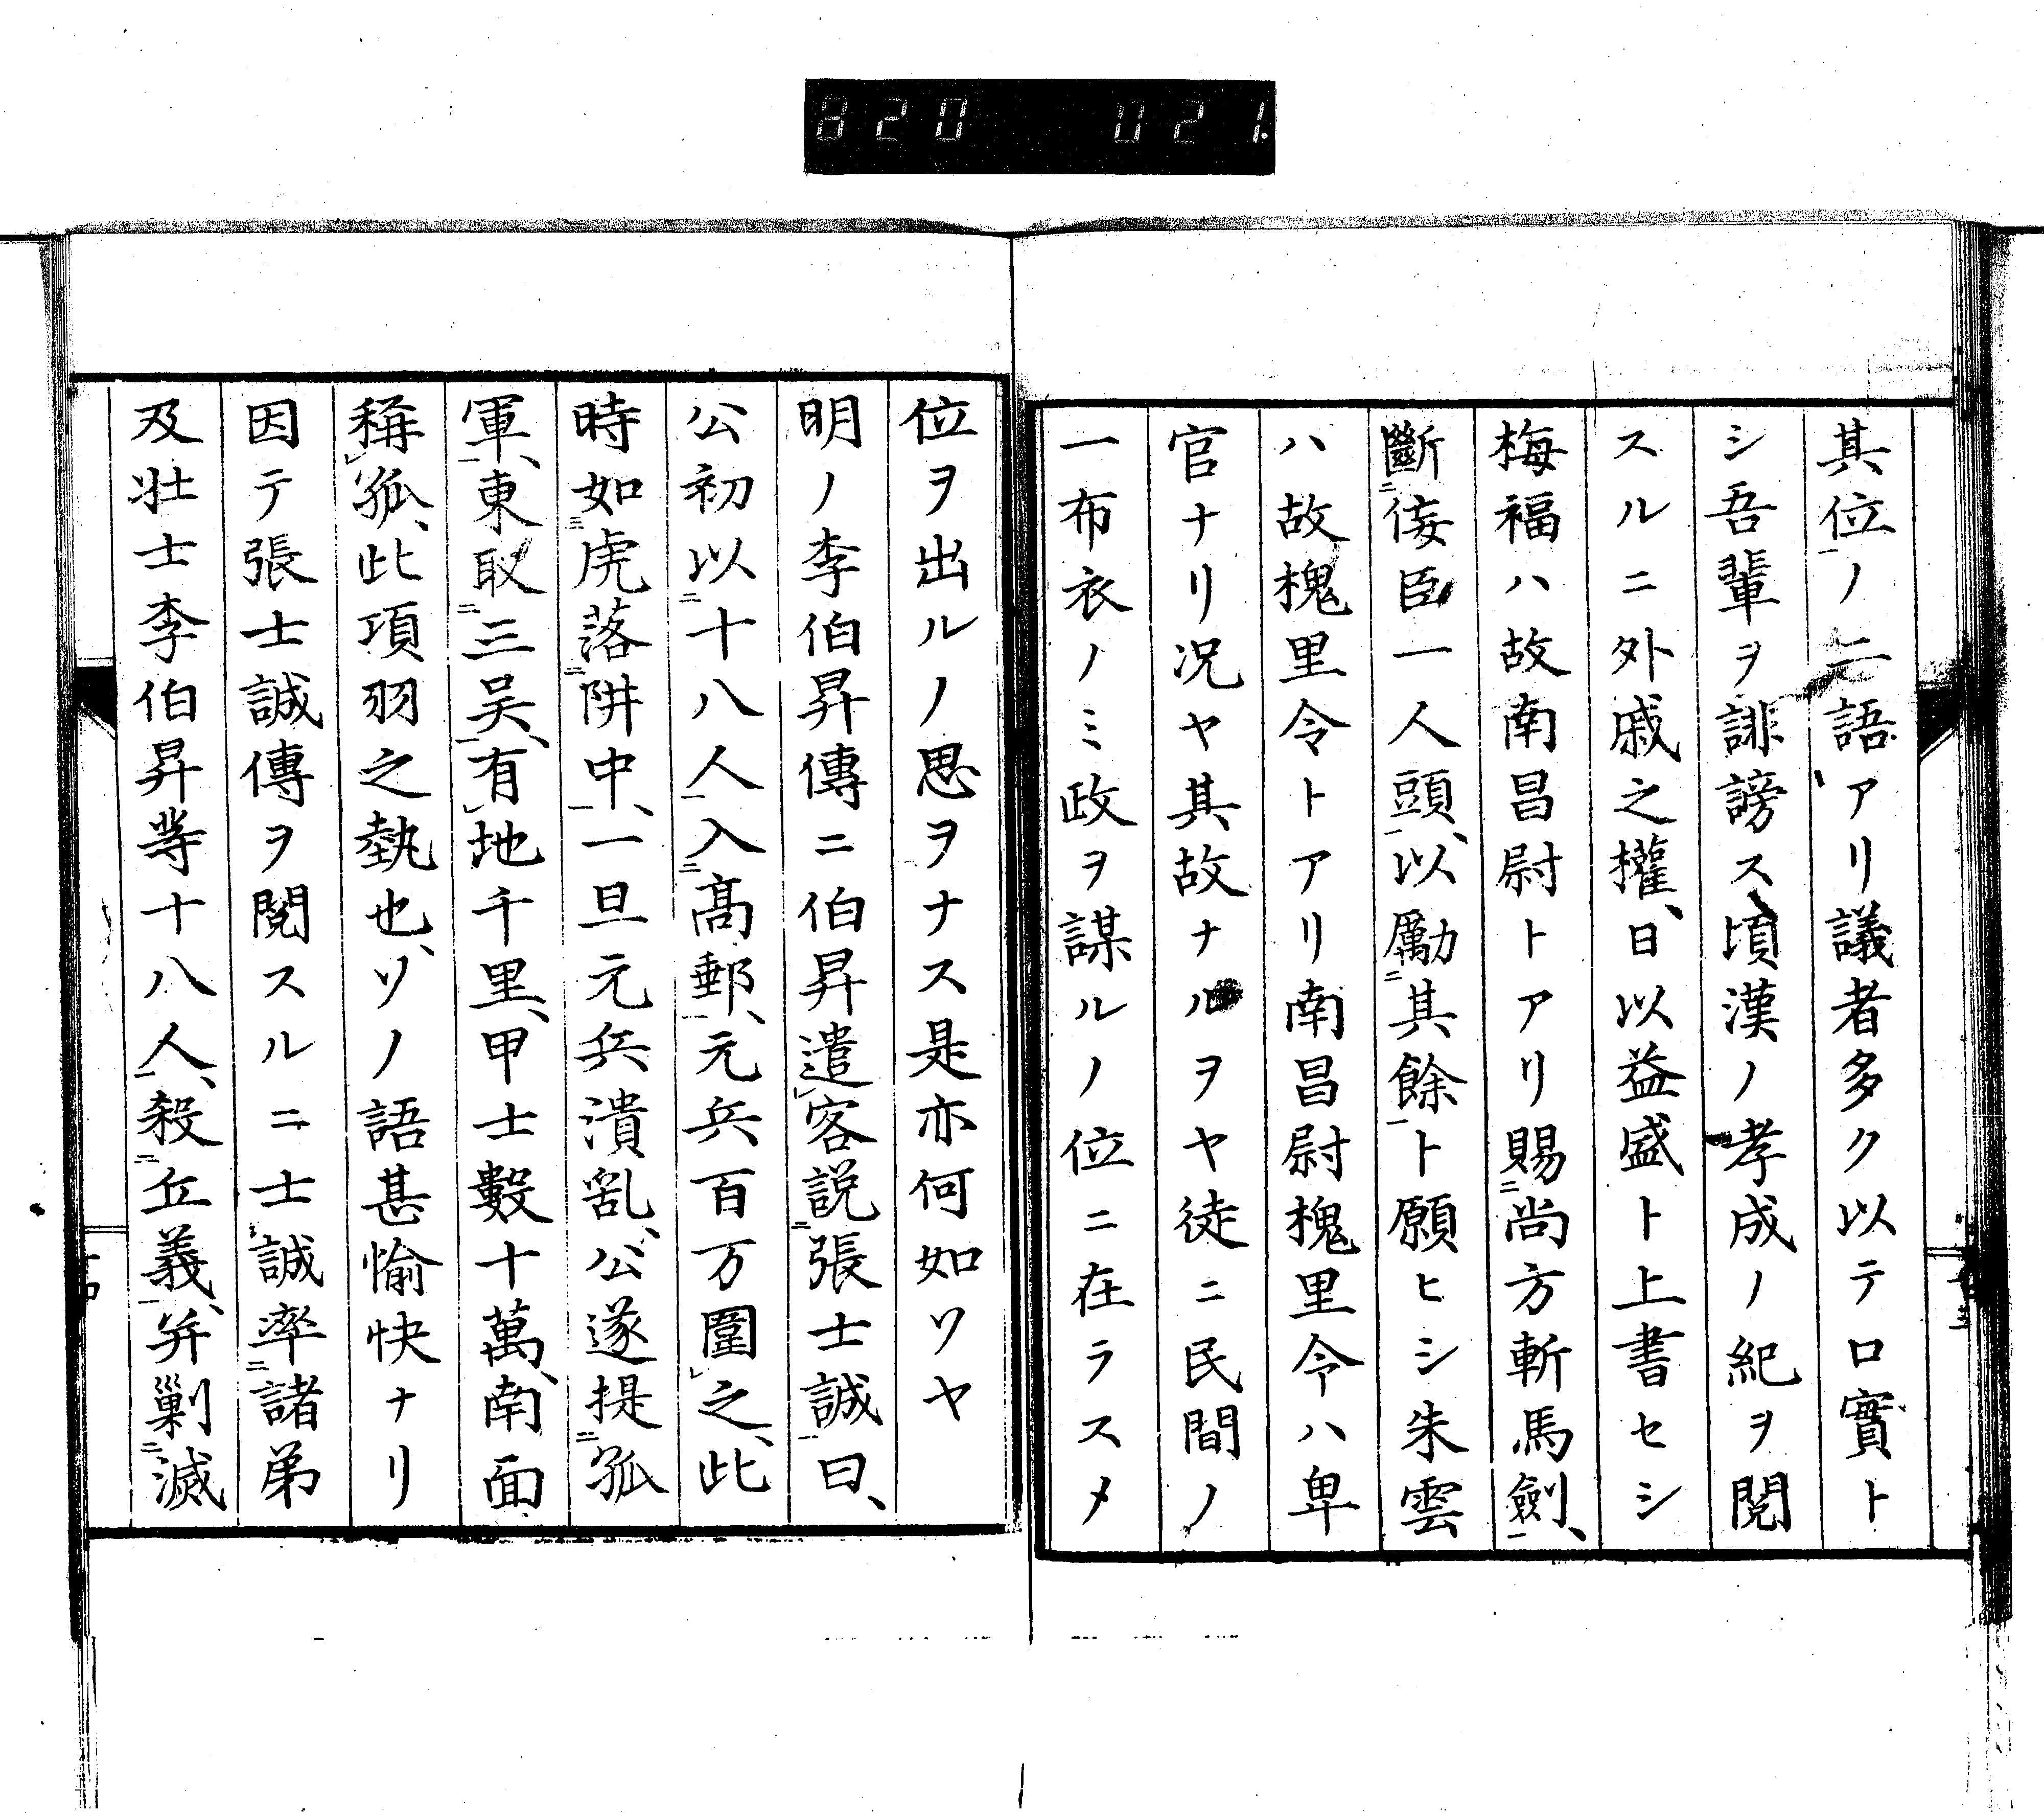 820 021.
其位ノ二語アリ議者多ク以テロ實ト
シ吾輩ヲ誹謗ス頃漢ノ孝成ノ紀ヲ閲
スルニ外戚之權、日以益盛ト上書セシ
梅福ハ故南昌尉トアリ賜二尚方斬馬劍一、
斷二佞臣一人頭一、以勵二其餘一ト願ヒシ朱雲
ハ故槐里令トアリ南昌尉槐里令ハ卑
官ナリ况ヤ其故ナルヲヤ徒ニ民間ノ
一布衣ノミ政ヲ謀ルノ位ニ在ラスメ
位ヲ出ルノ思ヲナス是亦何如ソヤ
明ノ李伯昇傳ニ伯昇遣レ客説二張士誠一曰、
公初以二十八人一入二高郵一、元兵百万圍レ之、此
時如三虎落二阱中一、一旦元兵潰乱、公遂提二孤
軍一、東取二三吴一、有レ地千里、甲士數十萬、南面
稱レ孤、此項羽之埶也、ソノ語甚愉快ナリ
因テ張士誠傳ヲ閲スルニ士誠率二諸弟
及壮士李伯昇等十八人一、殺二丘義一、并剿二滅